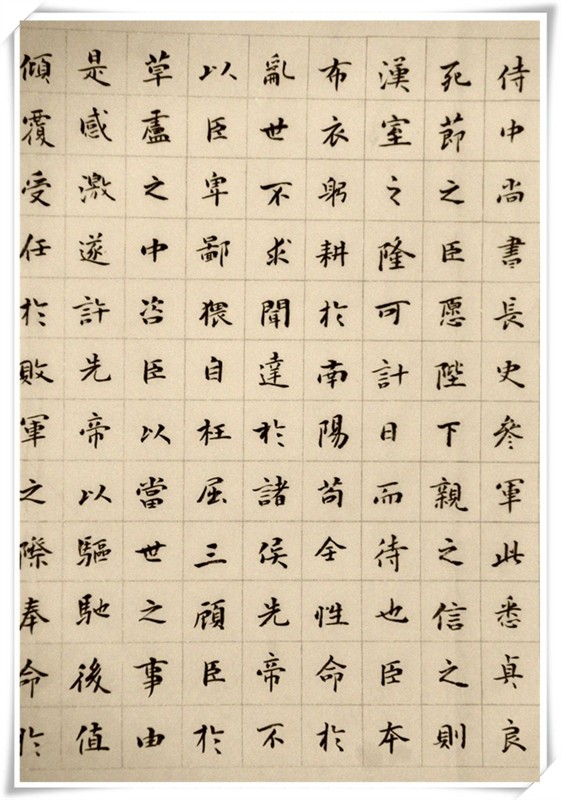 侍中尚書長史參軍此悉貞良
死節之臣愿陛下親之信之則
漢室之隆可計日而待也臣本
布衣躬耕於南陽苟全性命於
亂世不求聞達於諸侯先帝不
以臣卑鄙猥自枉屈三顧臣於
草廬之中咨臣以當世之事由
是感激遂許先帝以驅馳後值
傾覆受任於敗軍之際奉命於